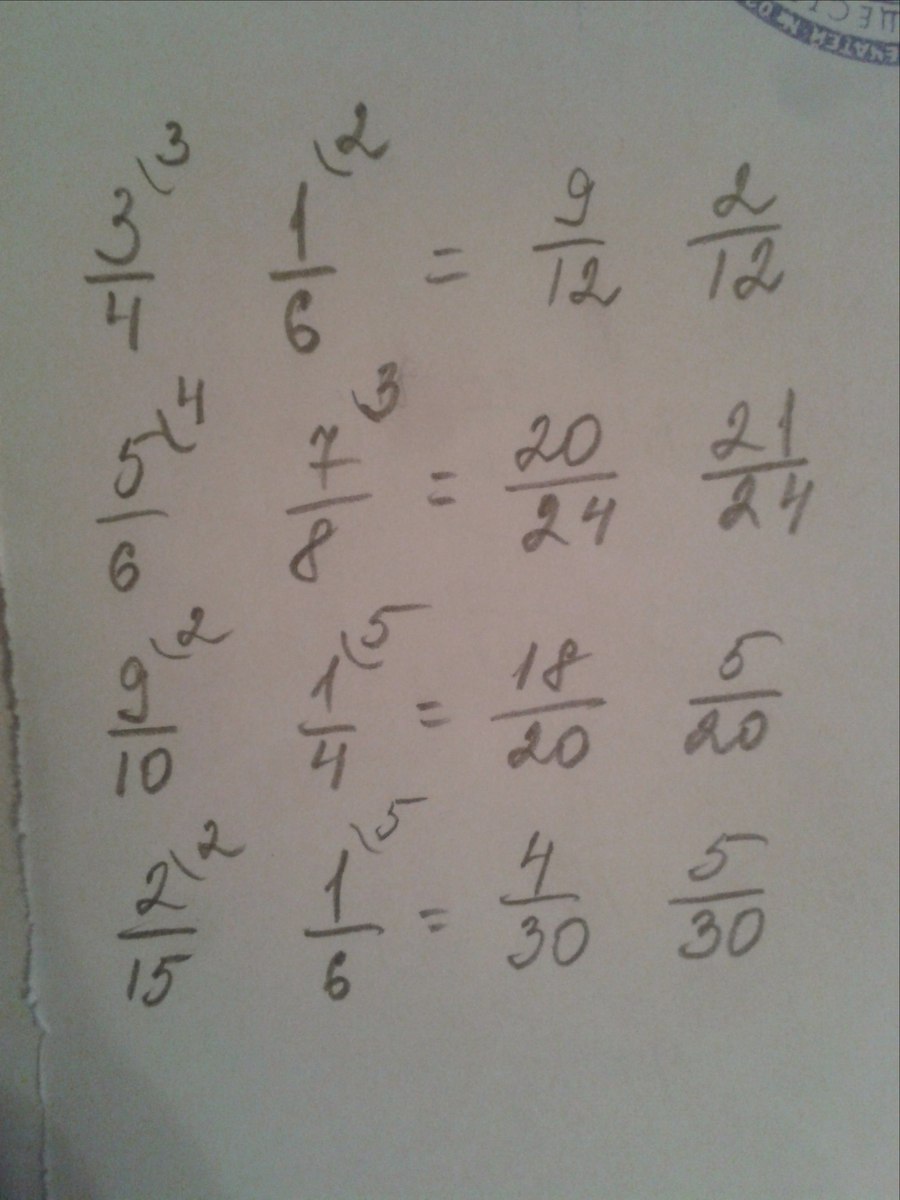 3/4 ⁽3 1/6 ⁽2 = 9/12 2/12
5/6 ⁽4 7/8 ⁽3 = 20/24 21/24
9/10 ⁽2 1/4 ⁽5 = 18/20 5/20
2/15 ⁽2 1/6 ⁽5 = 4/30 5/30